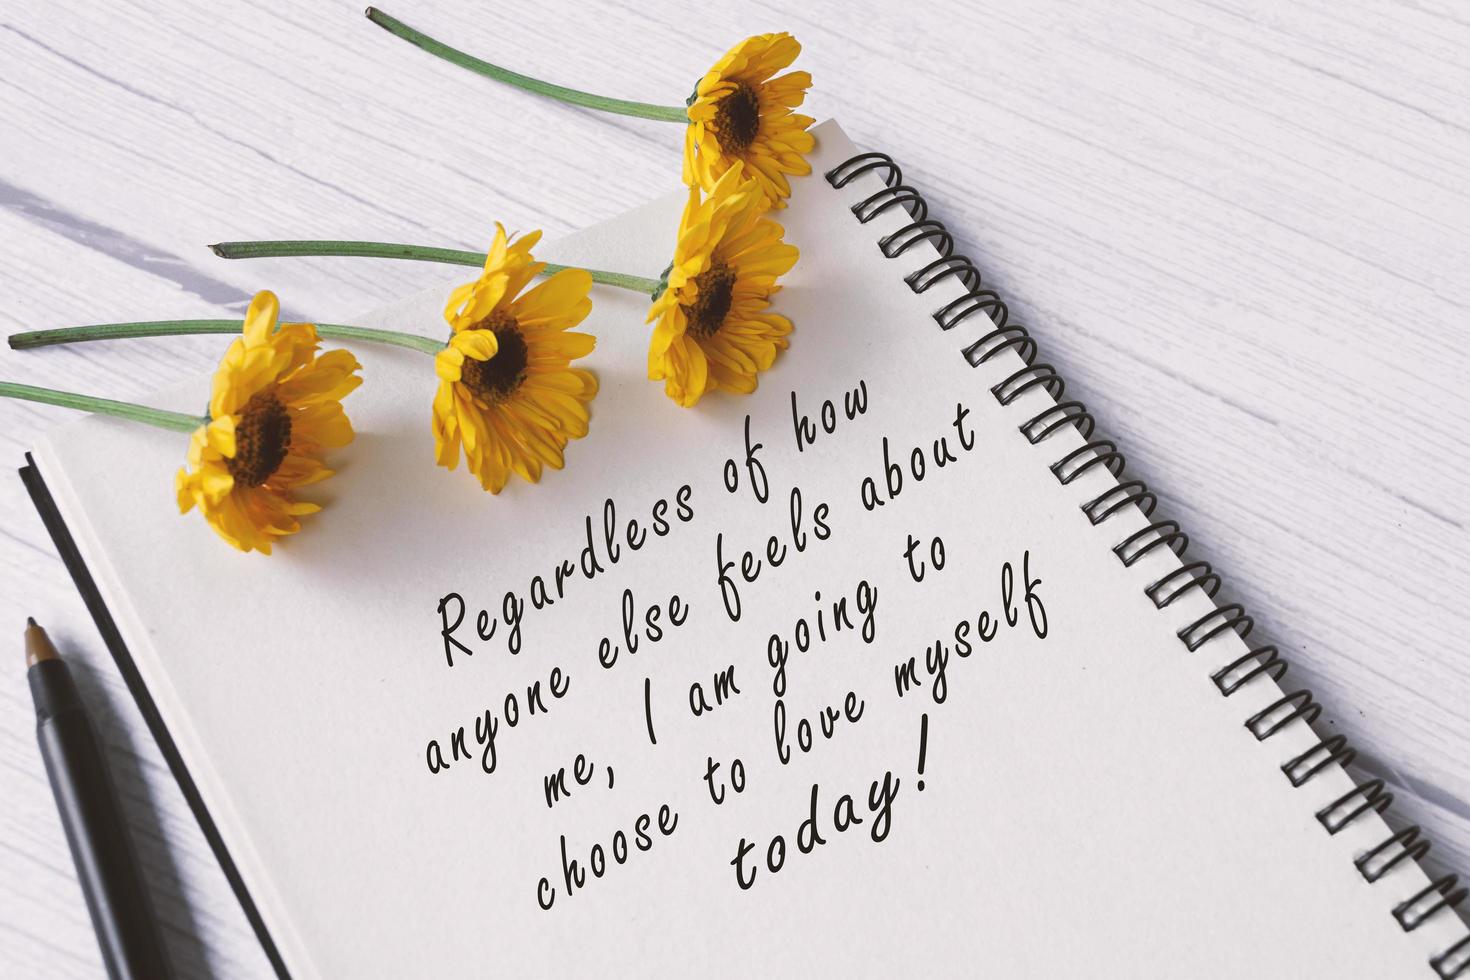 Regardless of how
anyone else feels about
me, I am going to
choose to love myself
today!